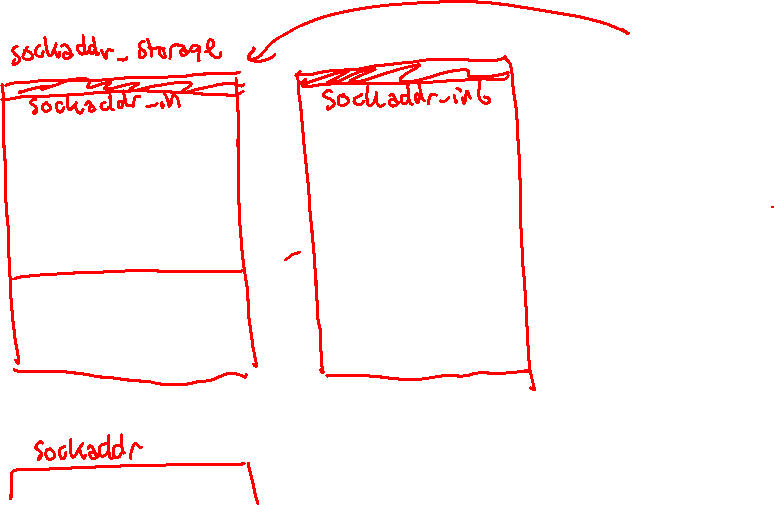 sockaddr_storage
sockaddr_in
sockaddr_in6
sockaddr